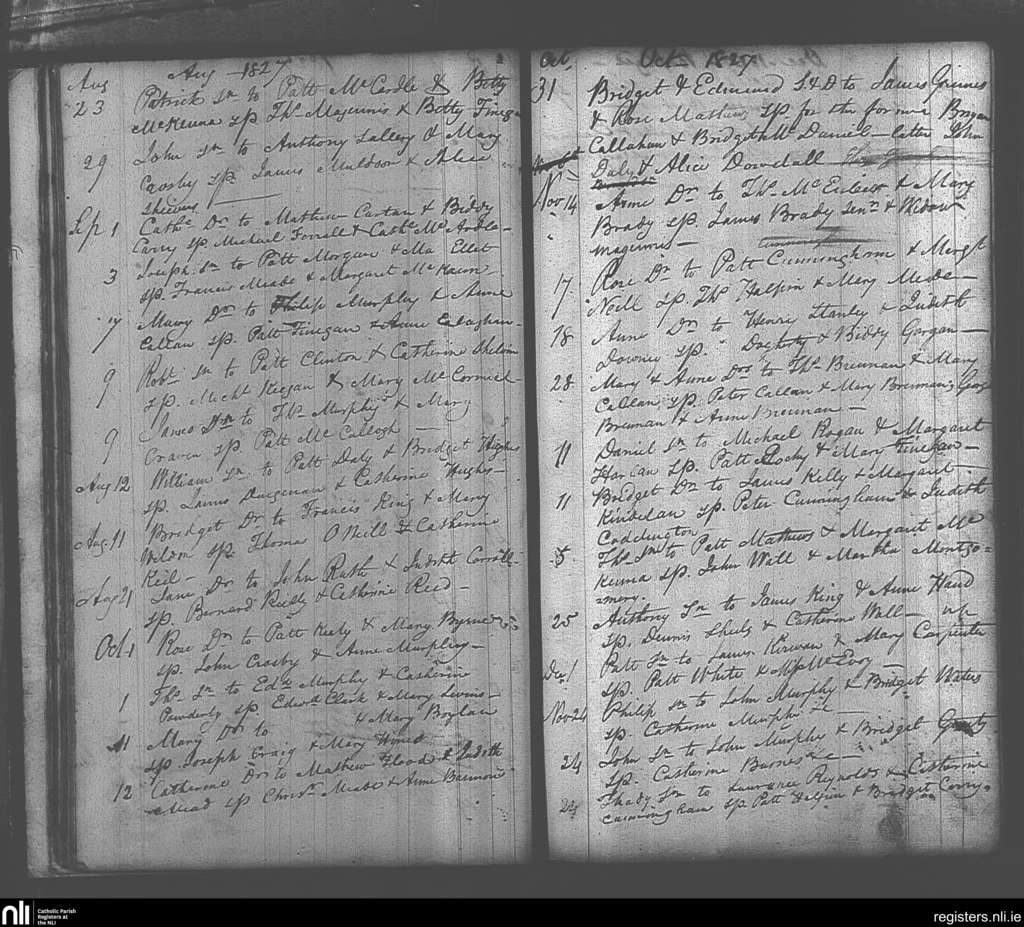 Aug Aug - 1827
23 Patrick Sn to Patt McCardle & Betty
McKenna sp Ths Magennis & Betty Finegan
29 John Sn to Anthony Lallery & Mary
Crosby sp. James Muldoon & Alice
Sheevers
Sep 1 Cathe Dr to Mathew Cartan & Biddy
Carry sp. Michael Farrell & Cathe McArdle
3 Joseph Sn to Patt Morgan & Ma Ellet
sp. Francis Meade & Margaret McKeown
7 Mary Dr to Philip Murphy & Anne
Callan sp. Patt Finegan & Anne Calaghan
9 Robt Sn to Patt Clinton & Catherine
sp. Michl Keegan & Mary McCormick
James Sn to Ths Murphy & Mary
9 Craven sp Patt McCullogh
Aug 12 William Sn to Patt Daly & Bridget Hughes
sp. James & Catherine Hughes
Aug. 11 Bridget Dr to Francis King & Mary
Weldn sp. Thomas O Neill & Catherine
Keil
Aug 21 Jane Dr to John Rath & Judith Carroll
sp. Bernard Reilly & Catherine Reed
Oct 1 Rose Dr to Patt Keely & Mary Byrne
sp. John Crosby & Anne Murphy
1 Ths Sn to Edwd Murphy & Catherine
Powderly sp Edwd Clark & Mary
11 Mary Dr to & Mary Boylan
sp Joseph Craig & Mary
12 Catherine Dr to Mathew Flood & Judith
Mead sp Christ Meade & Anne Bannon
Oct. Oct 1827
31 Bridget & Edmund S&D to James Grimes
& Rose Mathews sp. for the former Bryan
Callahan & Bridget McDaniel - latter John
Daly & Alice Dowdall
Nov 14 Anne Dr to Ths & Mary
Brady sp. James Brady Senr & Widow
Magennis
17 Rose Dr to Patt Cunningham & Margt
Neill sp. Ths Halpin & Mary Mede
18 Anne Dr to Henry Stanly & Judith
Downey sp. & Biddy Gargan
28 Mary & Anne Drs to Ths Brennan & Mary
Callan sp. Peter Callan & Mary Brennan, Georg
Brennan & Anne Brennan
11 Daniel Sn to Michael Rogan & Margaret
Harcan sp. Patt & Mary Finegan
11 Bridget Dr to James Kelly & Margaret
Kindelan sp. Peter Cunningham & Judith
Coddington
5 Ths Sn to Patt Mathews & Margaret Mc
Kenna sp. John Wall & Martha Montgo=
=mery.
25 Anthony Sn to James King & Anne Hand
sp. Dennis Sheels & Catherine Wall
Dec 1 Patt Sn to James Kirwan & Mary Carpenter
sp. Patt White & McEvoy
Nov 24 Philip Sn to John Murphy & Bridget Waters
sp. Catherine Murphy
24 John Sn to John Murphy & Bridget
sp. Catherine Burnes
24 Thady Sn to Lawrence Reynolds & Catherine
Cunningham sp. Patt Halpin & Bridget Corry.
nli Catholic Parish
Registers at
the NLI
registers.nli.ie